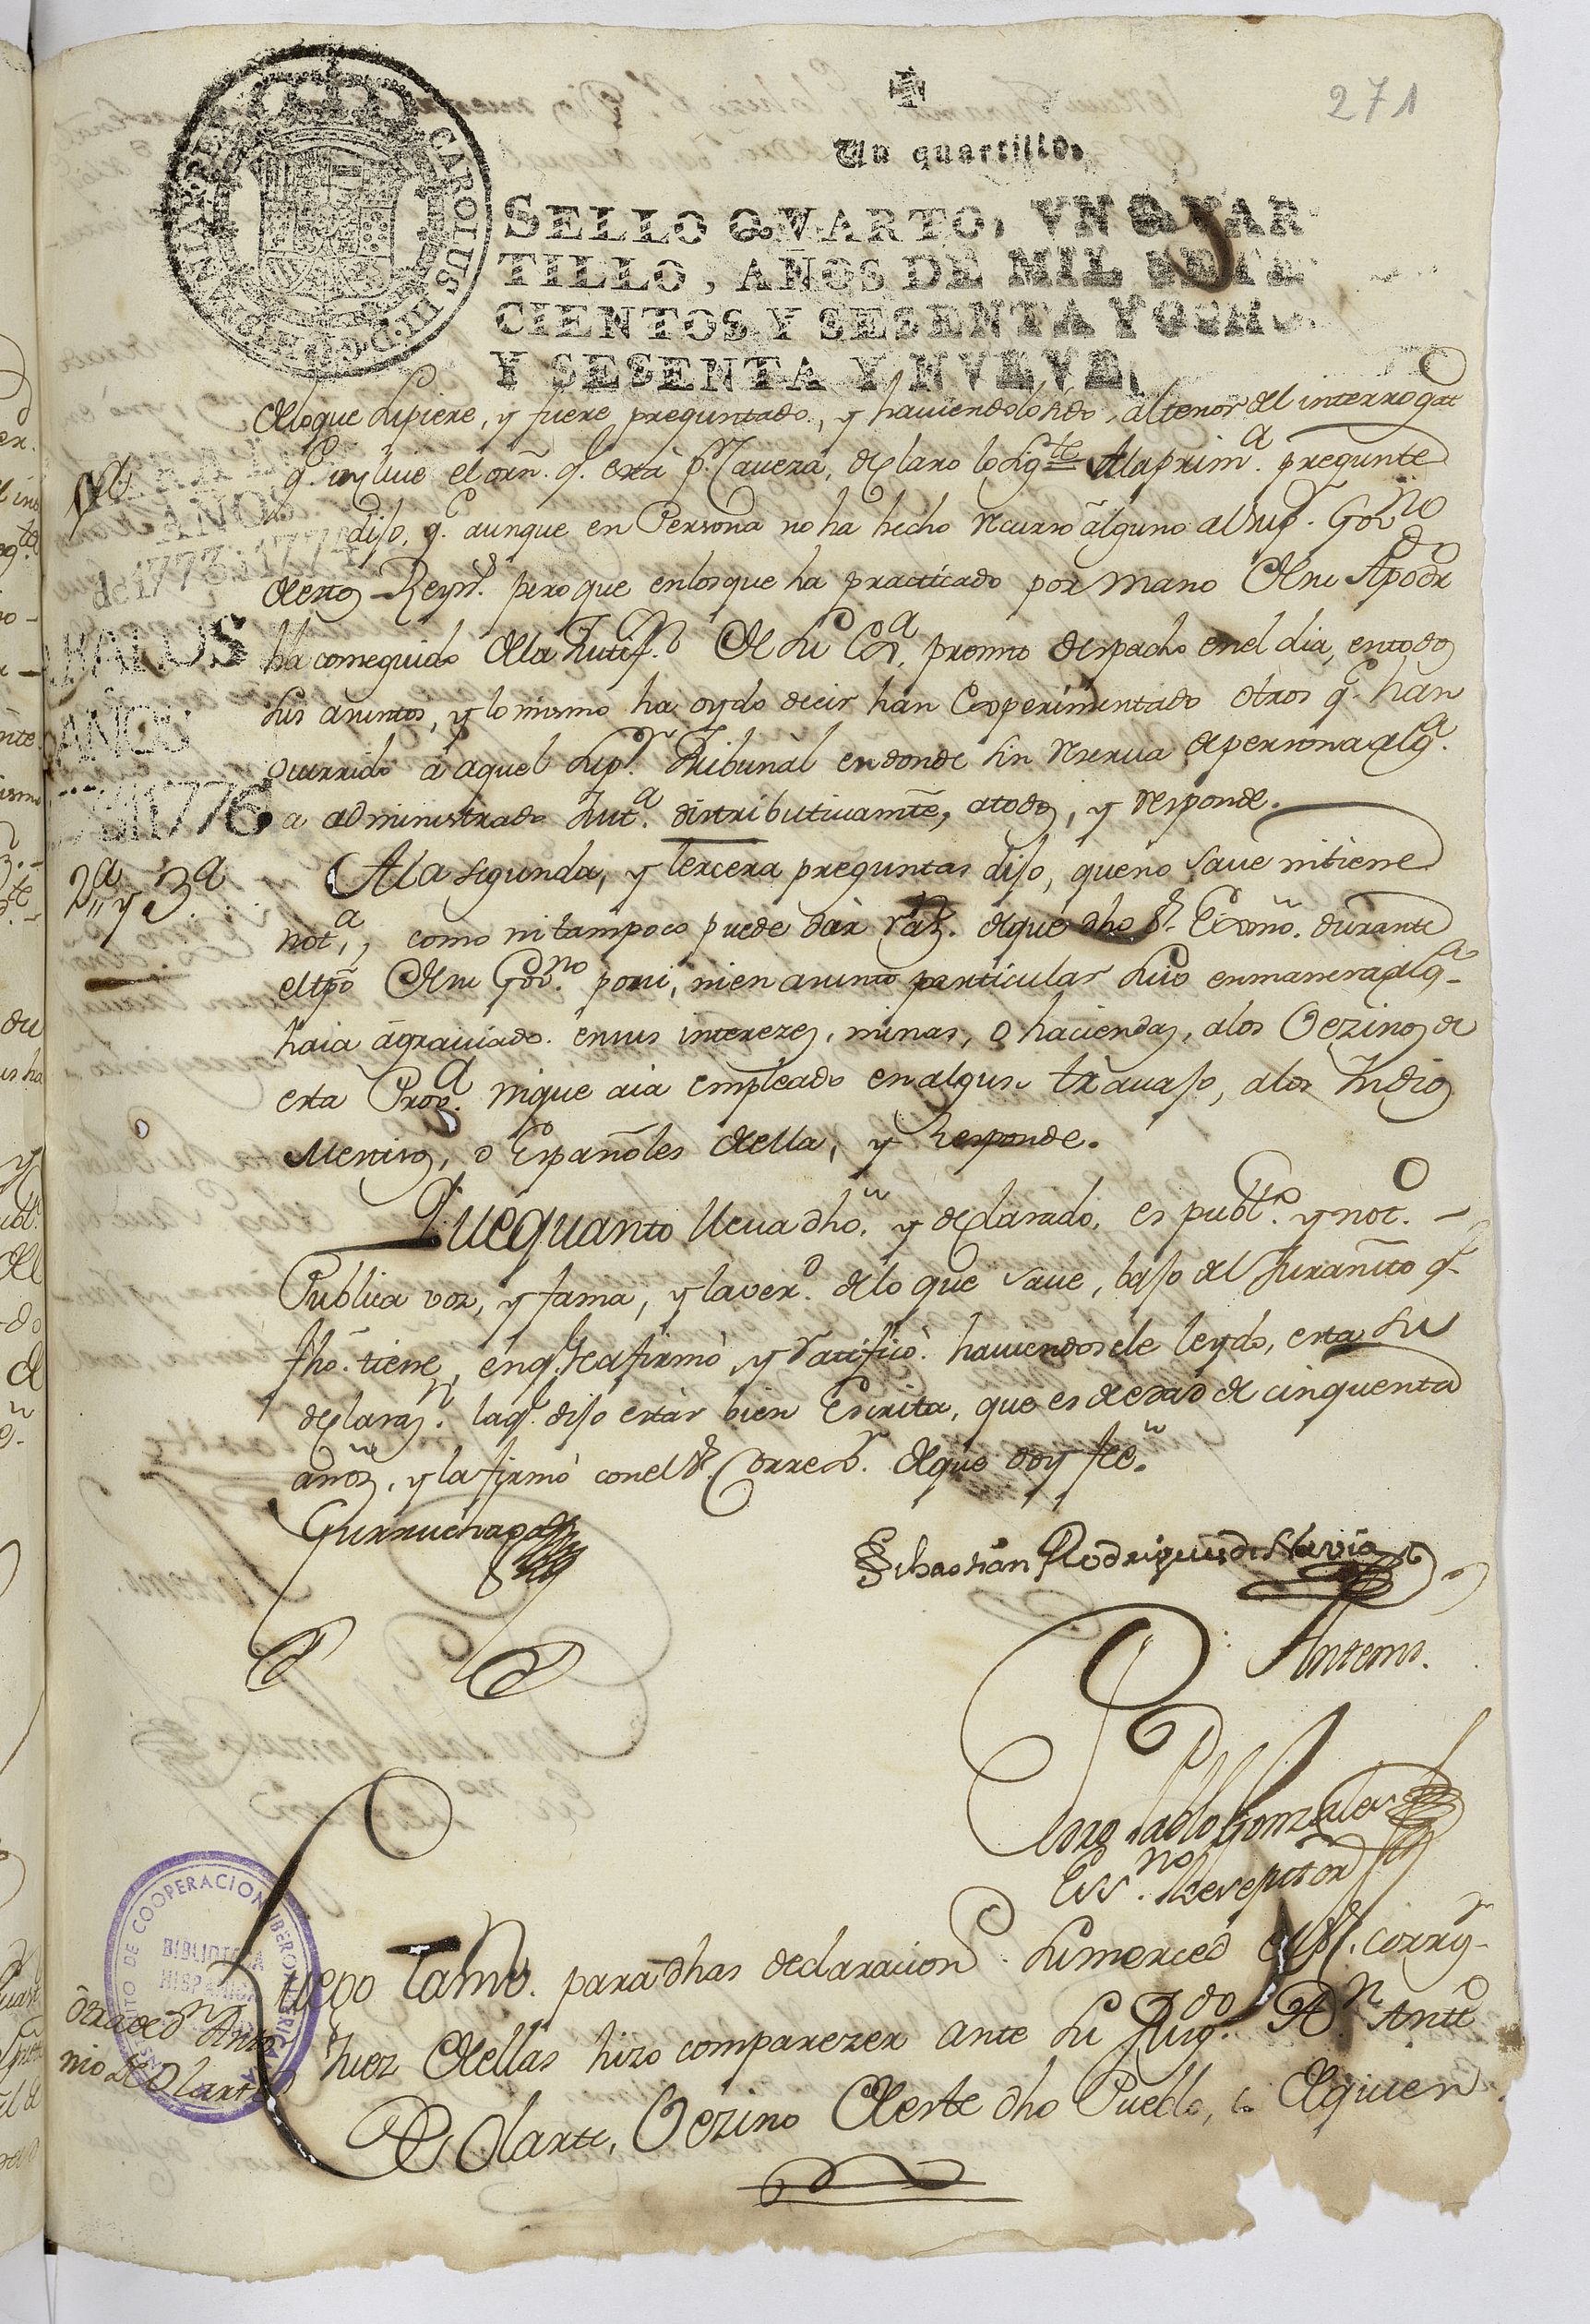 271
Un quartillo.
SELLO QVARTO, VN QVAR
TILLO, AÑOS DE MIL SETE
CIENTOS Y SESENTA Y OCHO
Y SESENTA Y NVEVE.
CAROLUS III D G HISPANIAR REX
de lo que supiere, y fuere preguntado, y haviendolo sido, al tenor del interrogat.o
1.a
q.e incluie el orñ. q.e está p.r Cavera, declaro lo sig.te A la prim.a pregunta
dijo, q.e aunque en Persona no ha hecho recurso alguno al Sup.r Gov.no
de estos Reyn.s pero que en los que ha practicado por mano de su Apodr.do
ha conseguido de la Justif.n de su Ex.a promto despacho en el dia, en todos
sus asuntos, y lo mismo ha oydo decir han Experimentado otros q.e han
ocurrido á aquel Sup.r Tribunal en donde sin reserva de persona alg.a
a administrado Just.a distributivamte, a todos, y responde.
2.a y 3.a
A la segunda, y tercera preguntas dijo, que no save ni tiene
not.a, como ni tampoco puede dár raz.n de que dho S.r Exmo. durante
el tpõ de su Gov.no por si, ni en asunto particular suio en manera alg.a
haia agraviado en sus interezes, minas, o haciendas, a los Vezinos de
esta Prov.a ni que aia empleado en algun travajo, a los Indios
Mestisos, o Españoles de ella, y responde.
Que quanto lleva dho. y declarado, es publ.co y not.o
Publica voz, y fama, y la ver.d de lo que save, bajo del Juramto q.e
fho. tiene, en q.e se afirmó y ratificó haviendosele leydo, esta su
declaraz.n la q.e dijo estár bien Escrita, que es de edad de cinquenta
años, y la firmó con el S.r Corre.or de que doy feé.
Gurruchaga
Sebastian Rodriguez de Navia
Antemi.
Pablo Gonzales
Ess.no Reseptor
otra de D.n Anto
nio de Olarte
Luego para dhas declaracion.s su merced el S.r corrg.r
Juez de ellas hizo comparezer ante su Juzg.do A D.n Ant.o
De Olarte, Vezino de este dho Pueblo, de quien
DE COOPERACION IBEROAMERICANA
BIBLIOTECA
HISPANICA
AÑOS
de 1773 i 1774
AÑOS
1776